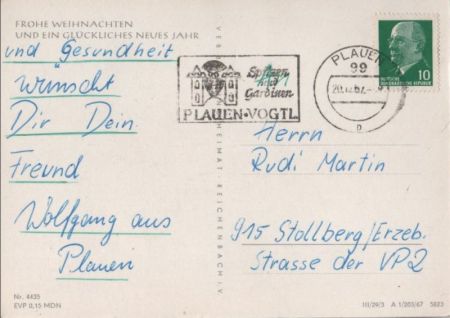 FROHE WEIHNACHTEN
UND EIN GLÜCKLICHES NEUES JAHR
und Gesundheit
wünscht
Dir Dein
Freund
Wolfgang aus
Plauen
Nr. 4435
EVP 0,15 MDN
HEIMAT · REICHENBACH I. V.
Spitzen
und
Gardinen
PLAUEN · VOGTL
PLAUEN
99
DEUTSCHE
DEMOKRATISCHE REPUBLIK
10
Herrn
Rudi Martin
915 Stollberg/Erzeb.
Strasse der VP2
III/29/5 A 1/203/67 5823